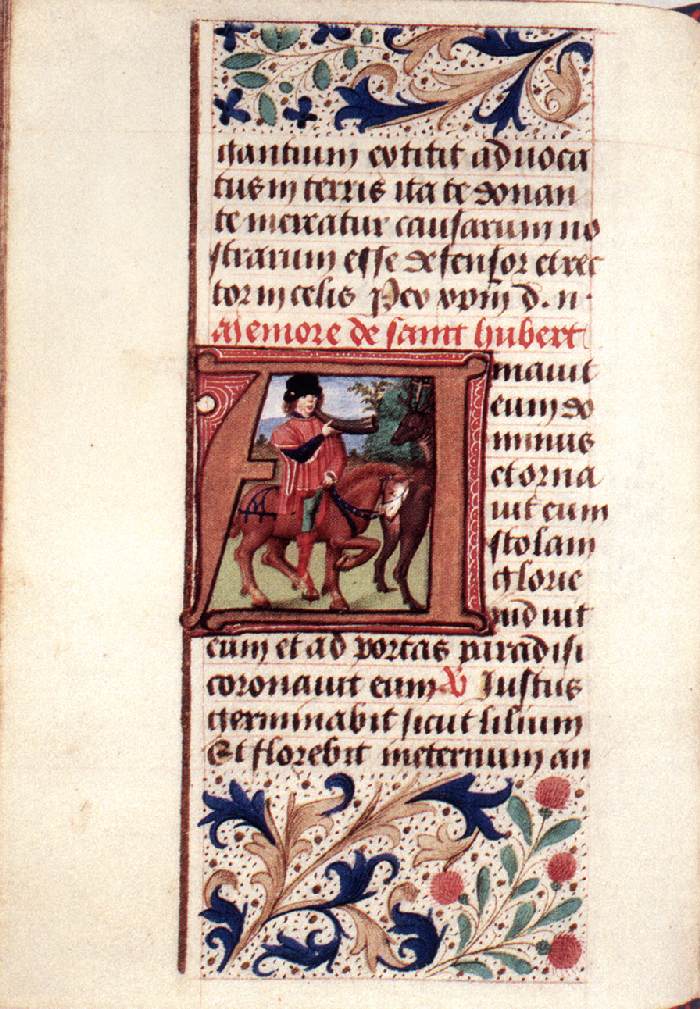 gantium extitit aduoca
tus in terris ita te donan
te mereatur causarum no
strarum esse defensor et rec
tor in celis Per xpm d. n.
Memore de saint hubert
A mauit
eum do
minus
et orna
uit eum
stolam
glorie
induit
eum et ad portas paradisi
coronauit eum V Iustus
germinabit sicut lilium
Et florebit ineternum an